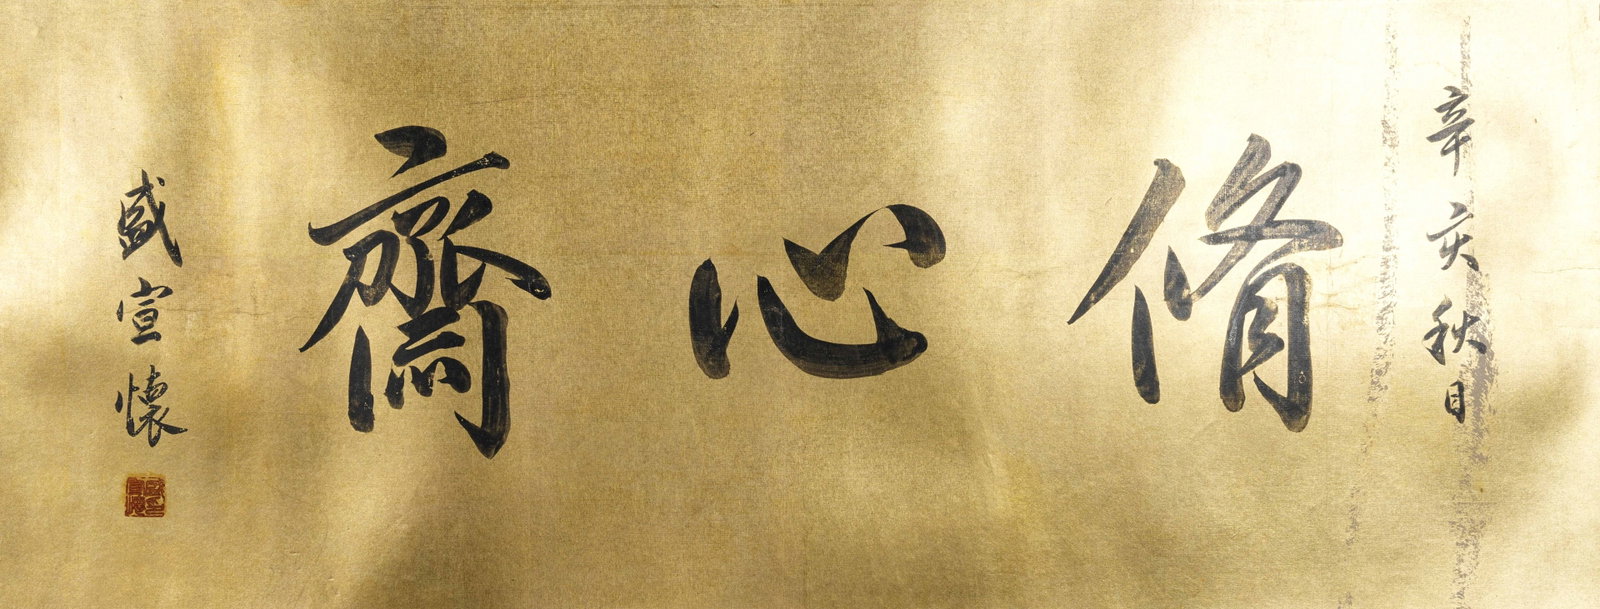 辛亥秋日
脩心齋
盛宣懷